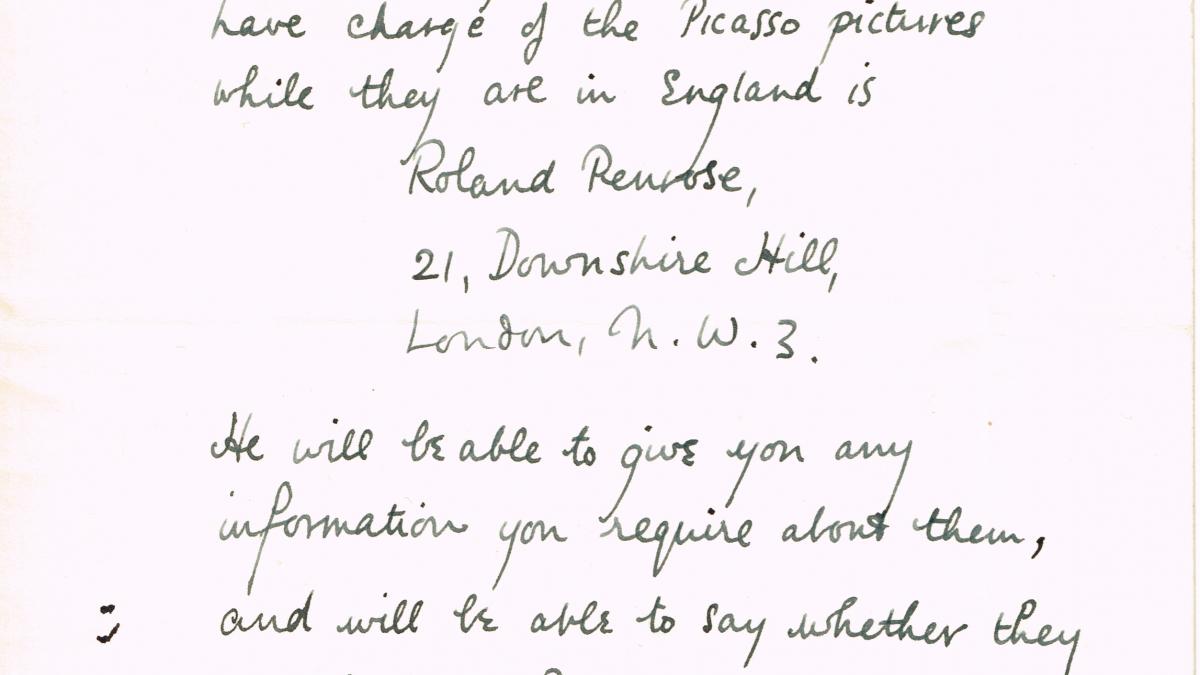 have charge of the Picasso pictures
while they are in England is
Roland Penrose,
21, Downshire Hill,
London, N.W.3.
He will be able to give you any
information you require about them,
and will be able to say whether they